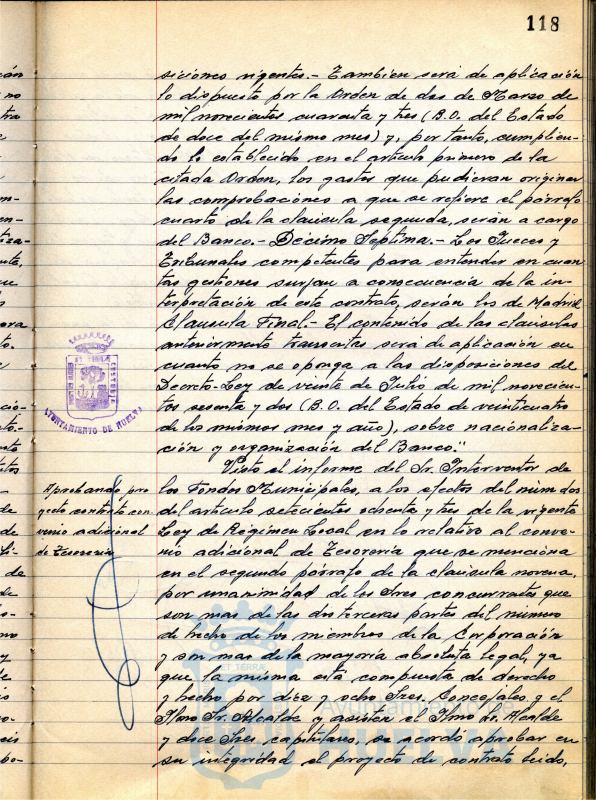 118
siciones vigentes.- Tambien será de aplicación
lo dispuesto por la Orden de dos de Marzo de
mil novecientos cuarenta y tres (B.O. del Estado
de doce del mismo mes) y, por tanto, cumplien-
do lo establecido en el artículo primero de la
citada Orden, los gastos que pudieran originar
las comprobaciones a que se refiere el párrafo
cuarto de la clausula segunda, serán a cargo
del Banco.- Décimo Septima.- Los Jueces y
Tribunales competentes para entender en cuan
tas gestiones surjan a consecuencia de la in-
terpretación de este contrato, serán los de Madrid
Clausula Final.- El contenido de las clausulas
anteriormente transcritas será de aplicación en
cuanto no se oponga a las disposiciones del
Decreto-Ley de veinte de Julio de mil novecien-
tos sesenta y dos (B.O. del Estado de veinticuatro
de los mismos mes y año), sobre nacionaliza-
ción y organización del Banco."
Visto el informe del Sr. Interventor de
los Fondos Municipales, a los efectos del núm dos
del artículo setecientos ochenta y tres de la vigente
Ley de Régimen Local en lo relativo al conve-
nio adicional de Tesorería que se menciona
en el segundo párrafo de la clausula novena,
por unanimidad de los Sres concurrentes que
son mas de las dos terceras partes del número
de hecho de los miembros de la Corporación
y son mas de la mayoría absoluta legal, ya
que la misma está compuesta de derecho
y hecho por diez y ocho Sres. Concejales y el
Iltmo Sr. Alcalde y asisten el Iltmo Sr. Alcalde
y doce Sres. capitulares, se acordo aprobar en
su integridad el proyecto de contrato leido,
Aprobando pro
yecto contrato con
venio adicional
de Tesoreria
AYUNTAMIENTO DE HUELVA
Ayuntamiento de
HUELVA